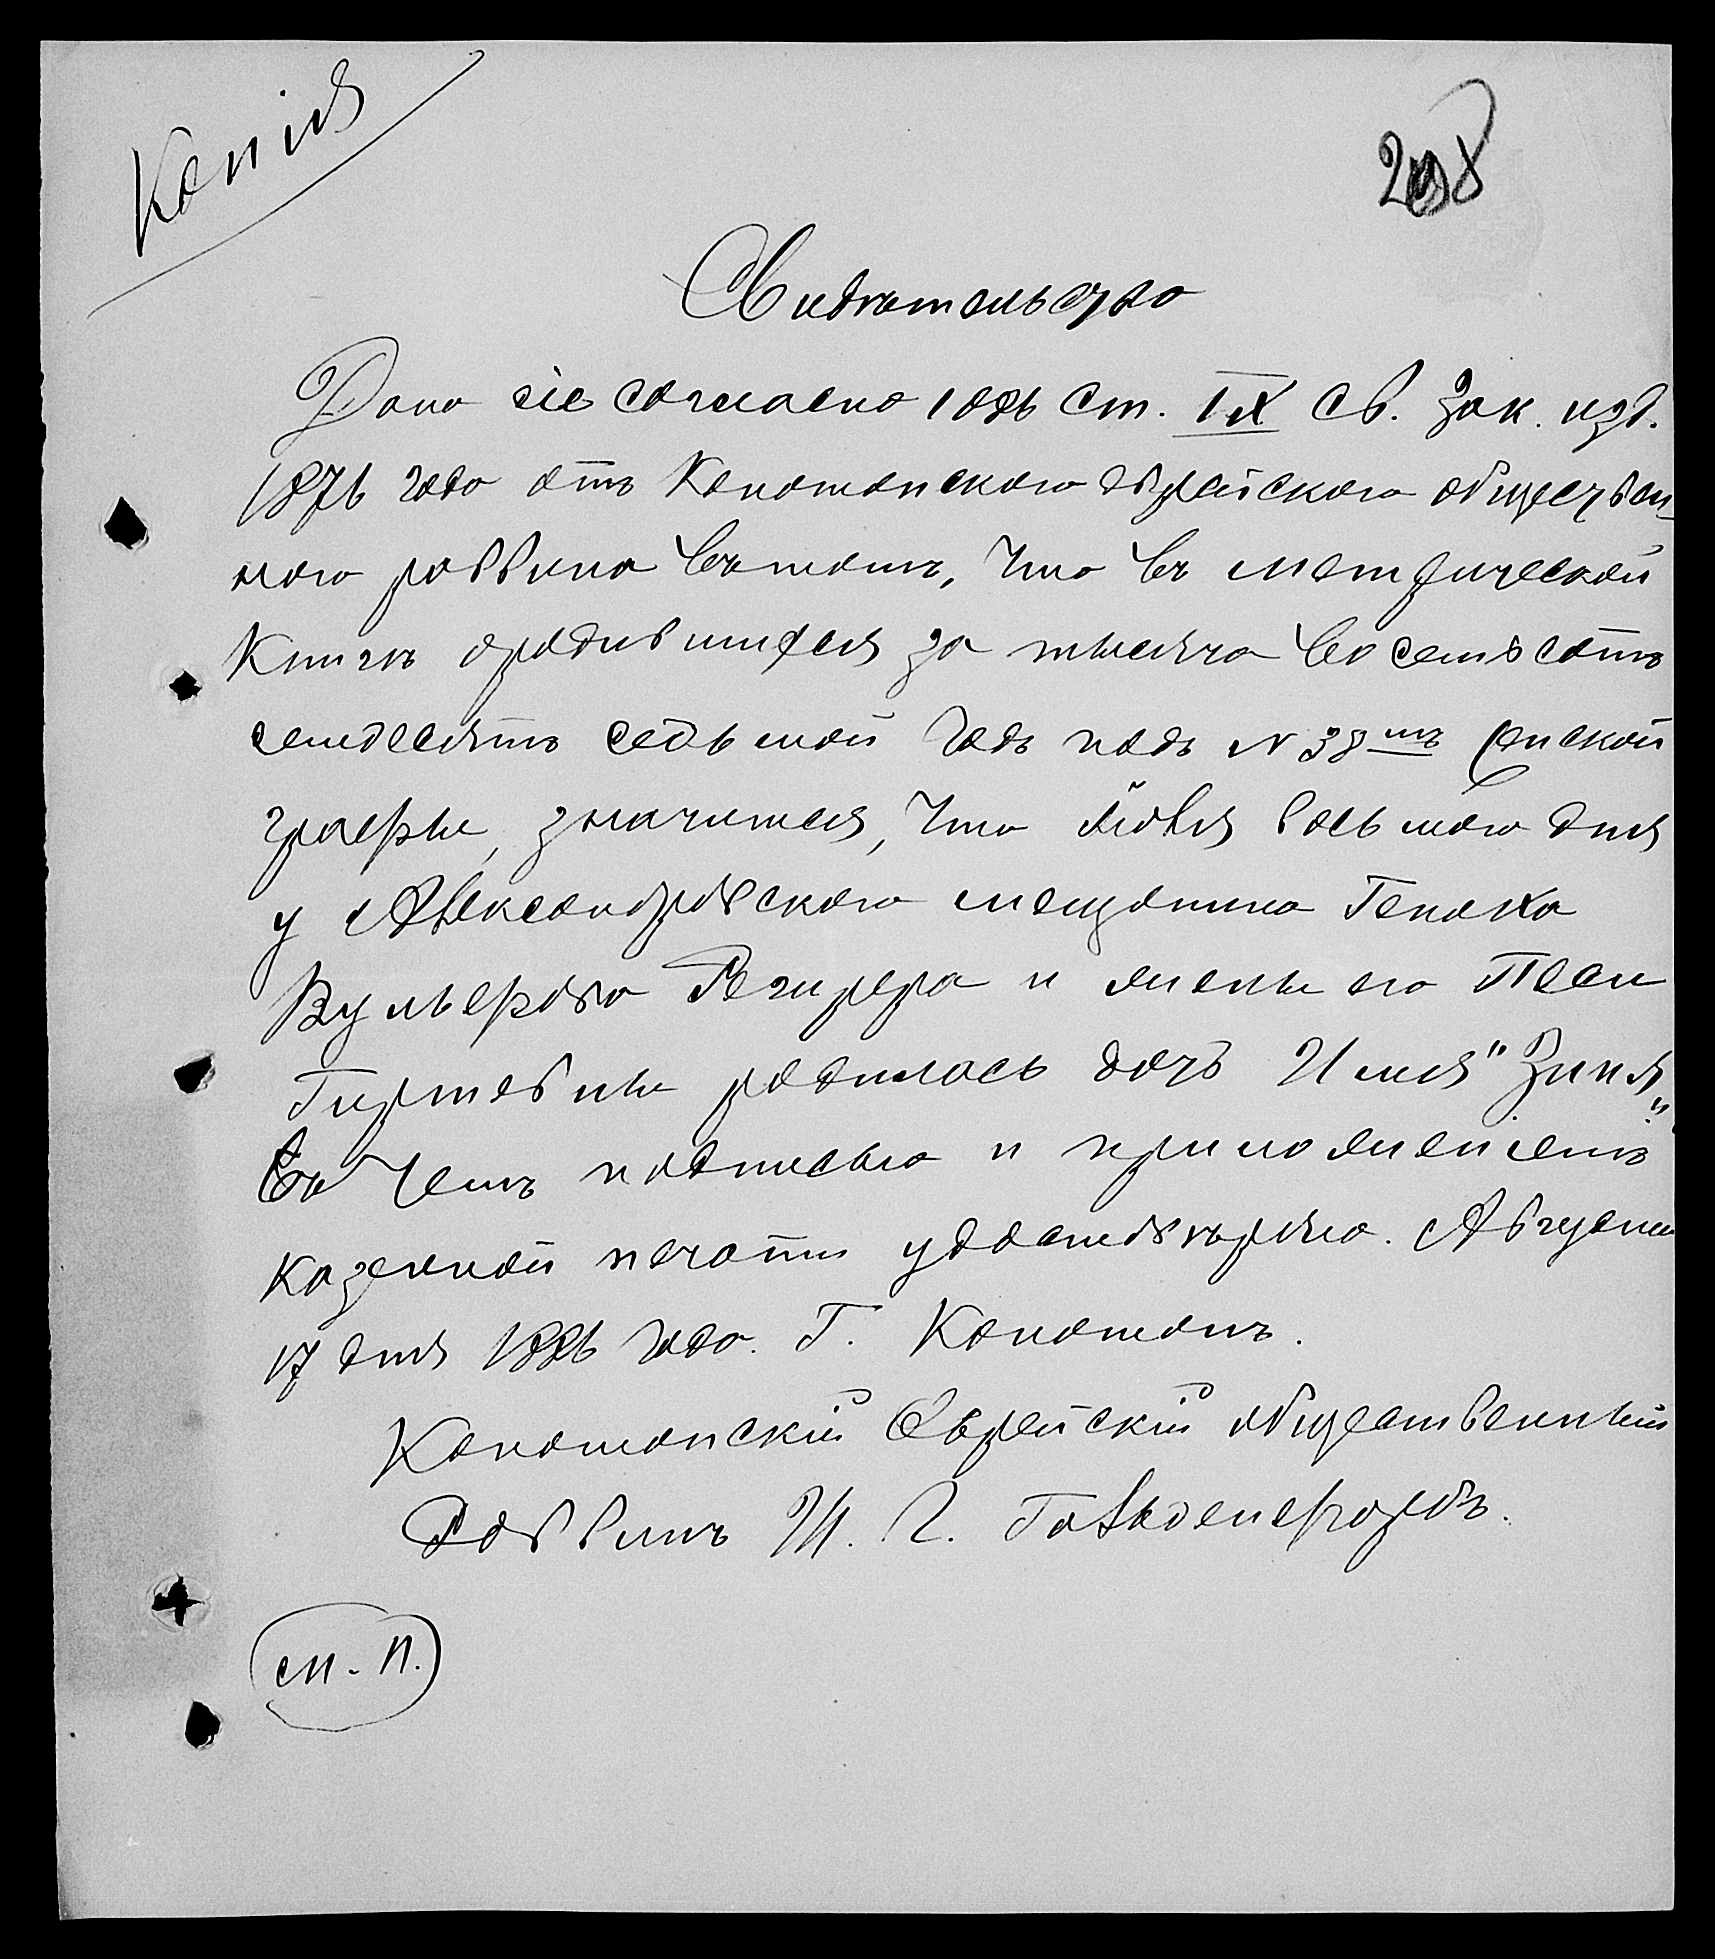 Копія
208
Свидѣтельство
Дано сіе согласно 1086 ст. IX Св. Зак. изд.
1876 года отъ Конотопскаго еврейскаго обществен-
наго раввина въ томъ, что въ метрической
Книгѣ о родившихся за тысяча восемьсотъ
семдесятъ седьмой годъ подъ N 38мъ женской
графы, значится, что Іюля восьмого дня
у Александровскаго мещанина Геноха
Вульфова и жены его Песи
родилась дочь Имя "Зиня"
Въ чемъ подписью и приложеніемъ
казенной печати удостовѣряю. Августа
17 дня 1886 года. Г. Конотопъ.
Конотопскій Еврейскій общественный
Раввинъ И. Г.
М. П.